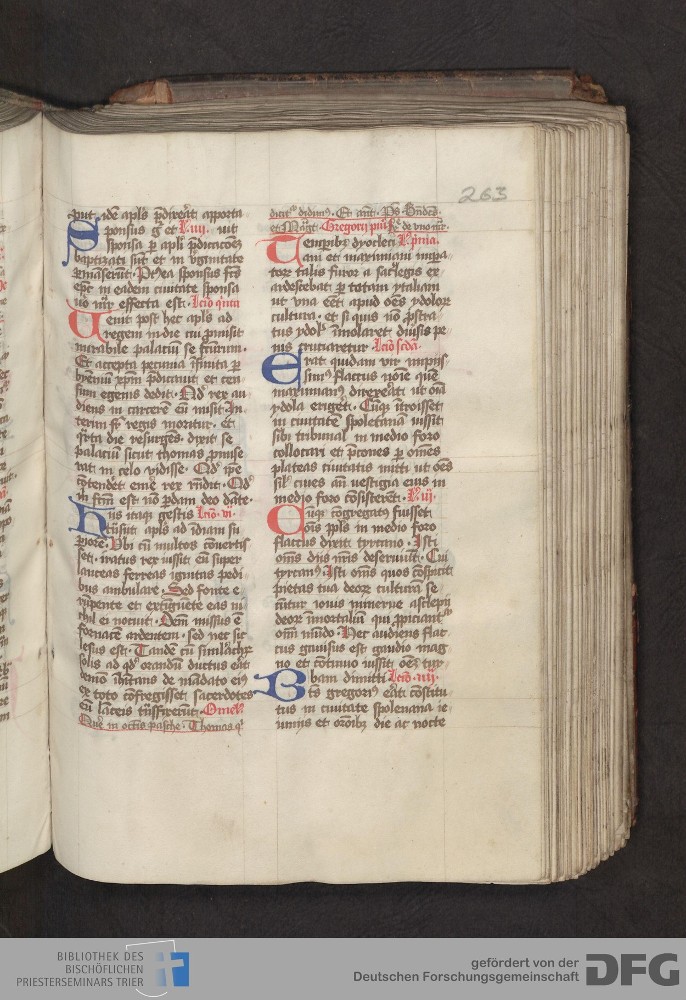 263
put. idē apl̄s p̄dixerat apporta
Sponsus g̅ et L. iiij. uit
sponsa p̲ apl̄i p̄dicacōeȝ
baptizati sūt et in v̓ginitate
p̲manserunt. Postea sponsus
ep̄c in eadem ciuitate sponsa
effecta est. Lc̄io q̓nta
Uenit post hec apl̄s ad
regem indie cui p̄misit
mirabile palaciū se fc̄urum.
Et accepta pecunia p̲
xp̄m p̄dicauit et cen
sum egenis dedit. rex au
diens in carcerē eū misit In
terim fr̄ regis moritur. et
die resurgēs dixit se
palaciū sicut thomas p̄mise
rat in celo vidisse. Qd̓ ip̄e
cōtendet emē rex rn̄dit. Qd̓
in est nō p̲dam deo dāte.
Hiis itaq; gestis Lc̄io. vi.
apl̄s ad īdiam su
p̲iorē. Vbi cū multos cōuertis
set. iratus rex iussit eū super
lanceas ferreas ignitas pedi
bus ambulare. Sed fonte e
rūpente et extīguēte eas ni
chil ei nocuit. Deīn missus ē
fornacē ardentem. sed nec sic
lesus est. Tandē cū simlachꝝ
solis ad qd̓ orandū ductus eāt
demō īh̓itans de mādato ei⁹
ex toto cōfregisset sacerdotes
eū lāceis tūsfixerūt. Omel̓.
Que in octīs pasche. Thomas q̓
dicit̓ didim⁹. Et
et Gregorij de vno mr̄.
Tempibꝫ dyocleci Lc̄ p̄ma.
ani et maximiani impa
toꝝ talis furor a sac̓legis ex
ardescebat p̲ totam ytaliam
ut vna eēt apud oēs ydoloꝝ
cultura. et si quis nō p̄stra
tus ydol̓ īmolaret diu̓sis pe
nis cruciaretur. Lc̄io sc̄da.
Erat quidam vir impiis
sim⁹ flaccus noīe quē
maximian⁹ direxerat ut oīa
ydola erig̓et. Cūq; ītroisset
in ciuitatē spoletanā iussit
sibi tribunal in medio foro
collocari et p̄cones p̲ om̄es
plateas ciuitatis mitti ut oēs
sil̓ ciues cū vestigia eius in
medio foro cōsisterēt. L. iij.
Cūq; cōgregat⁹ fuisset
oīs pp̄ls in medio foro
flaccus dixit tyrcano. Isti
om̄s dīis nr̄is deseruiūt. Cui
tyrcan⁹ Isti om̄s quos cōspicit
pietas tua deoꝝ culturā se
cūtur iouis minerue asclepii
deoꝝ īmortaliū qui p̄piciant̓
om̄i mūdo. Hec audiens flac
cus gauisus est gaudio mag
no et cōtinuo iussit oēȝ tur
bam dimitti. Lc̄io. iiij.
Bt̄s gregori⁹ eāt cōstitu
tus in ciuitate spoletana ie
iuniis et or̄onibꝫ die ac nocte
BIBLIOTHEK DES
BISCHÖFLICHEN
PRIESTERSEMINARS TRIER
gefördert von der
Deutschen Forschungsgemeinschaft
DFG